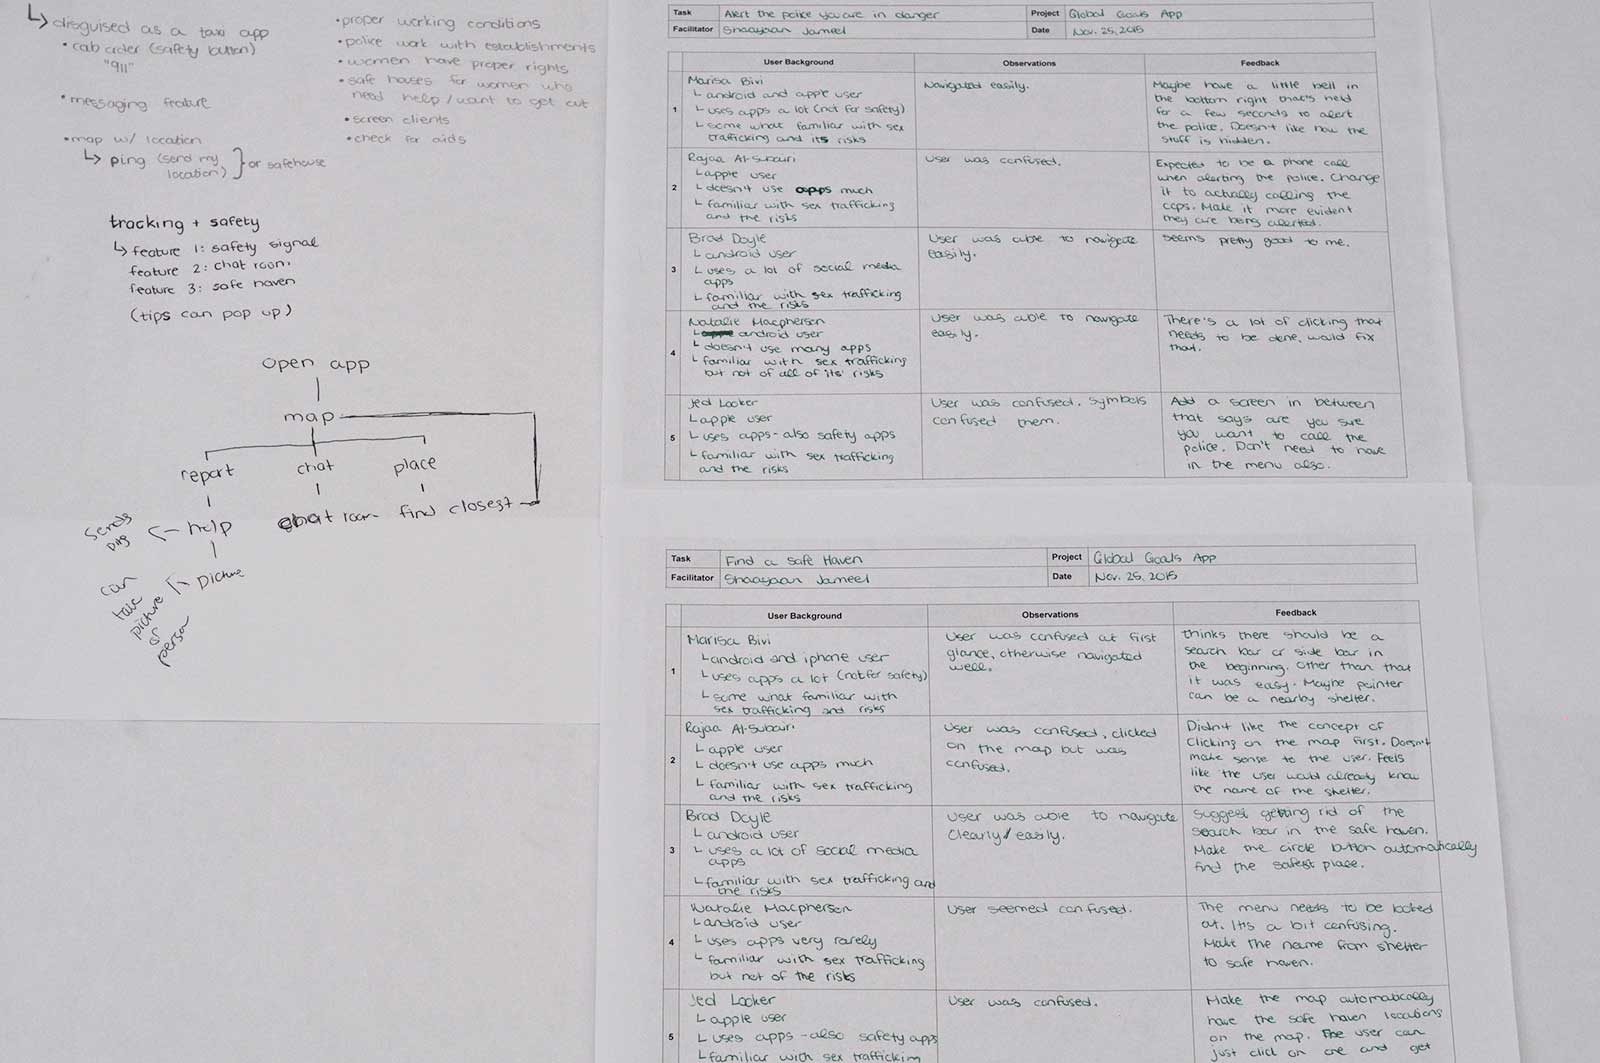 ↳ disguised as a taxi app
• cab order (safety button)
"911"
• messaging feature
• map w/ location
↳ ping (send my location) } or safehouse
• proper working conditions
• police work with establishments
• women have proper rights
• safe houses for women who
need help/want to get out
• screen clients
• check for aids
tracking + safety
↳ feature 1: safety signal
feature 2: chat room
feature 3: safe haven
(tips can pop up)
open app
map
report chat place
help chat room find closest
sends
ping
picture
can
take
picture
of
person
Task Alert the police you are in danger Project Global Goals App
Facilitator Shaayaan Jameel Date Nov. 25, 2015
User Background Observations Feedback
1
Marisa Bivi
└ android and apple user
└ uses apps a lot (not for safety)
└ some what familiar with sex
trafficking and its risks
Navigated easily.
Maybe have a little bell in
the bottom right that's held
for a few seconds to alert
the police. Doesn't like how the
stuff is hidden.
2
Rajaa Al-Subairi
└ apple user
└ doesn't use apps much
└ familiar with sex trafficking
and the risks
User was confused.
Expected to be a phone call
when alerting the police. Change
it to actually calling the
cops. Make it more evident
they are being alerted.
3
Brad Doyle
└ android user
└ uses a lot of social media
apps
└ familiar with sex trafficking
and the risks
User was able to navigate
easily.
Seems pretty good to me.
4
Natalie Macpherson
└ android user
└ doesn't use many apps
└ familiar with sex trafficking
but not of all of its' risks
User was able to navigate
easily.
There's a lot of clicking that
needs to be done, would fix
that.
5
Jed Looker
└ apple user
└ uses apps - also safety apps
└ familiar with sex trafficking
and the risks
User was confused. Symbols
confused them.
Add a screen in between
that says are you sure
you want to call the
police. Don't need to have
in the menu also.
Task Find a Safe Haven Project Global Goals App
Facilitator Shaayaan Jameel Date Nov. 25, 2015
User Background Observations Feedback
1
Marisa Bivi
└ android and iphone user
└ uses apps a lot (not for safety)
└ some what familiar with
sex trafficking and risks
User was confused at first
glance, otherwise navigated
well.
thinks there should be a
search bar or side bar in
the beginning. Other than that
it was easy. Maybe pointer
can be a nearby shelter.
2
Rajaa Al-Subairi
└ apple user
└ doesn't use apps much
└ familiar with sex trafficking
and the risks
User was confused, clicked
on the map but was
confused.
Didn't like the concept of
clicking on the map first. Doesn't
make sense to the user. Feels
like the user would already know
the name of the shelter.
3
Brad Doyle
└ android user
└ uses a lot of social media
apps
└ familiar with sex trafficking and
the risks
User was able to navigate
clearly/easily.
Suggest getting rid of the
search bar in the safe haven.
Make the circle button automatically
find the safest place.
4
Natalie Macpherson
└ android user
└ uses apps very rarely
└ familiar with sex trafficking
but not of the risks
User seemed confused.
The menu needs to be looked
at. It's a bit confusing.
Make the name from shelter
to safe haven.
5
Jed Looker
└ apple user
└ uses apps - also safety apps
└ familiar with sex trafficking
User was confused.
Make the map automatically
have the safe haven locations
on the map. The user can
just click on one and get